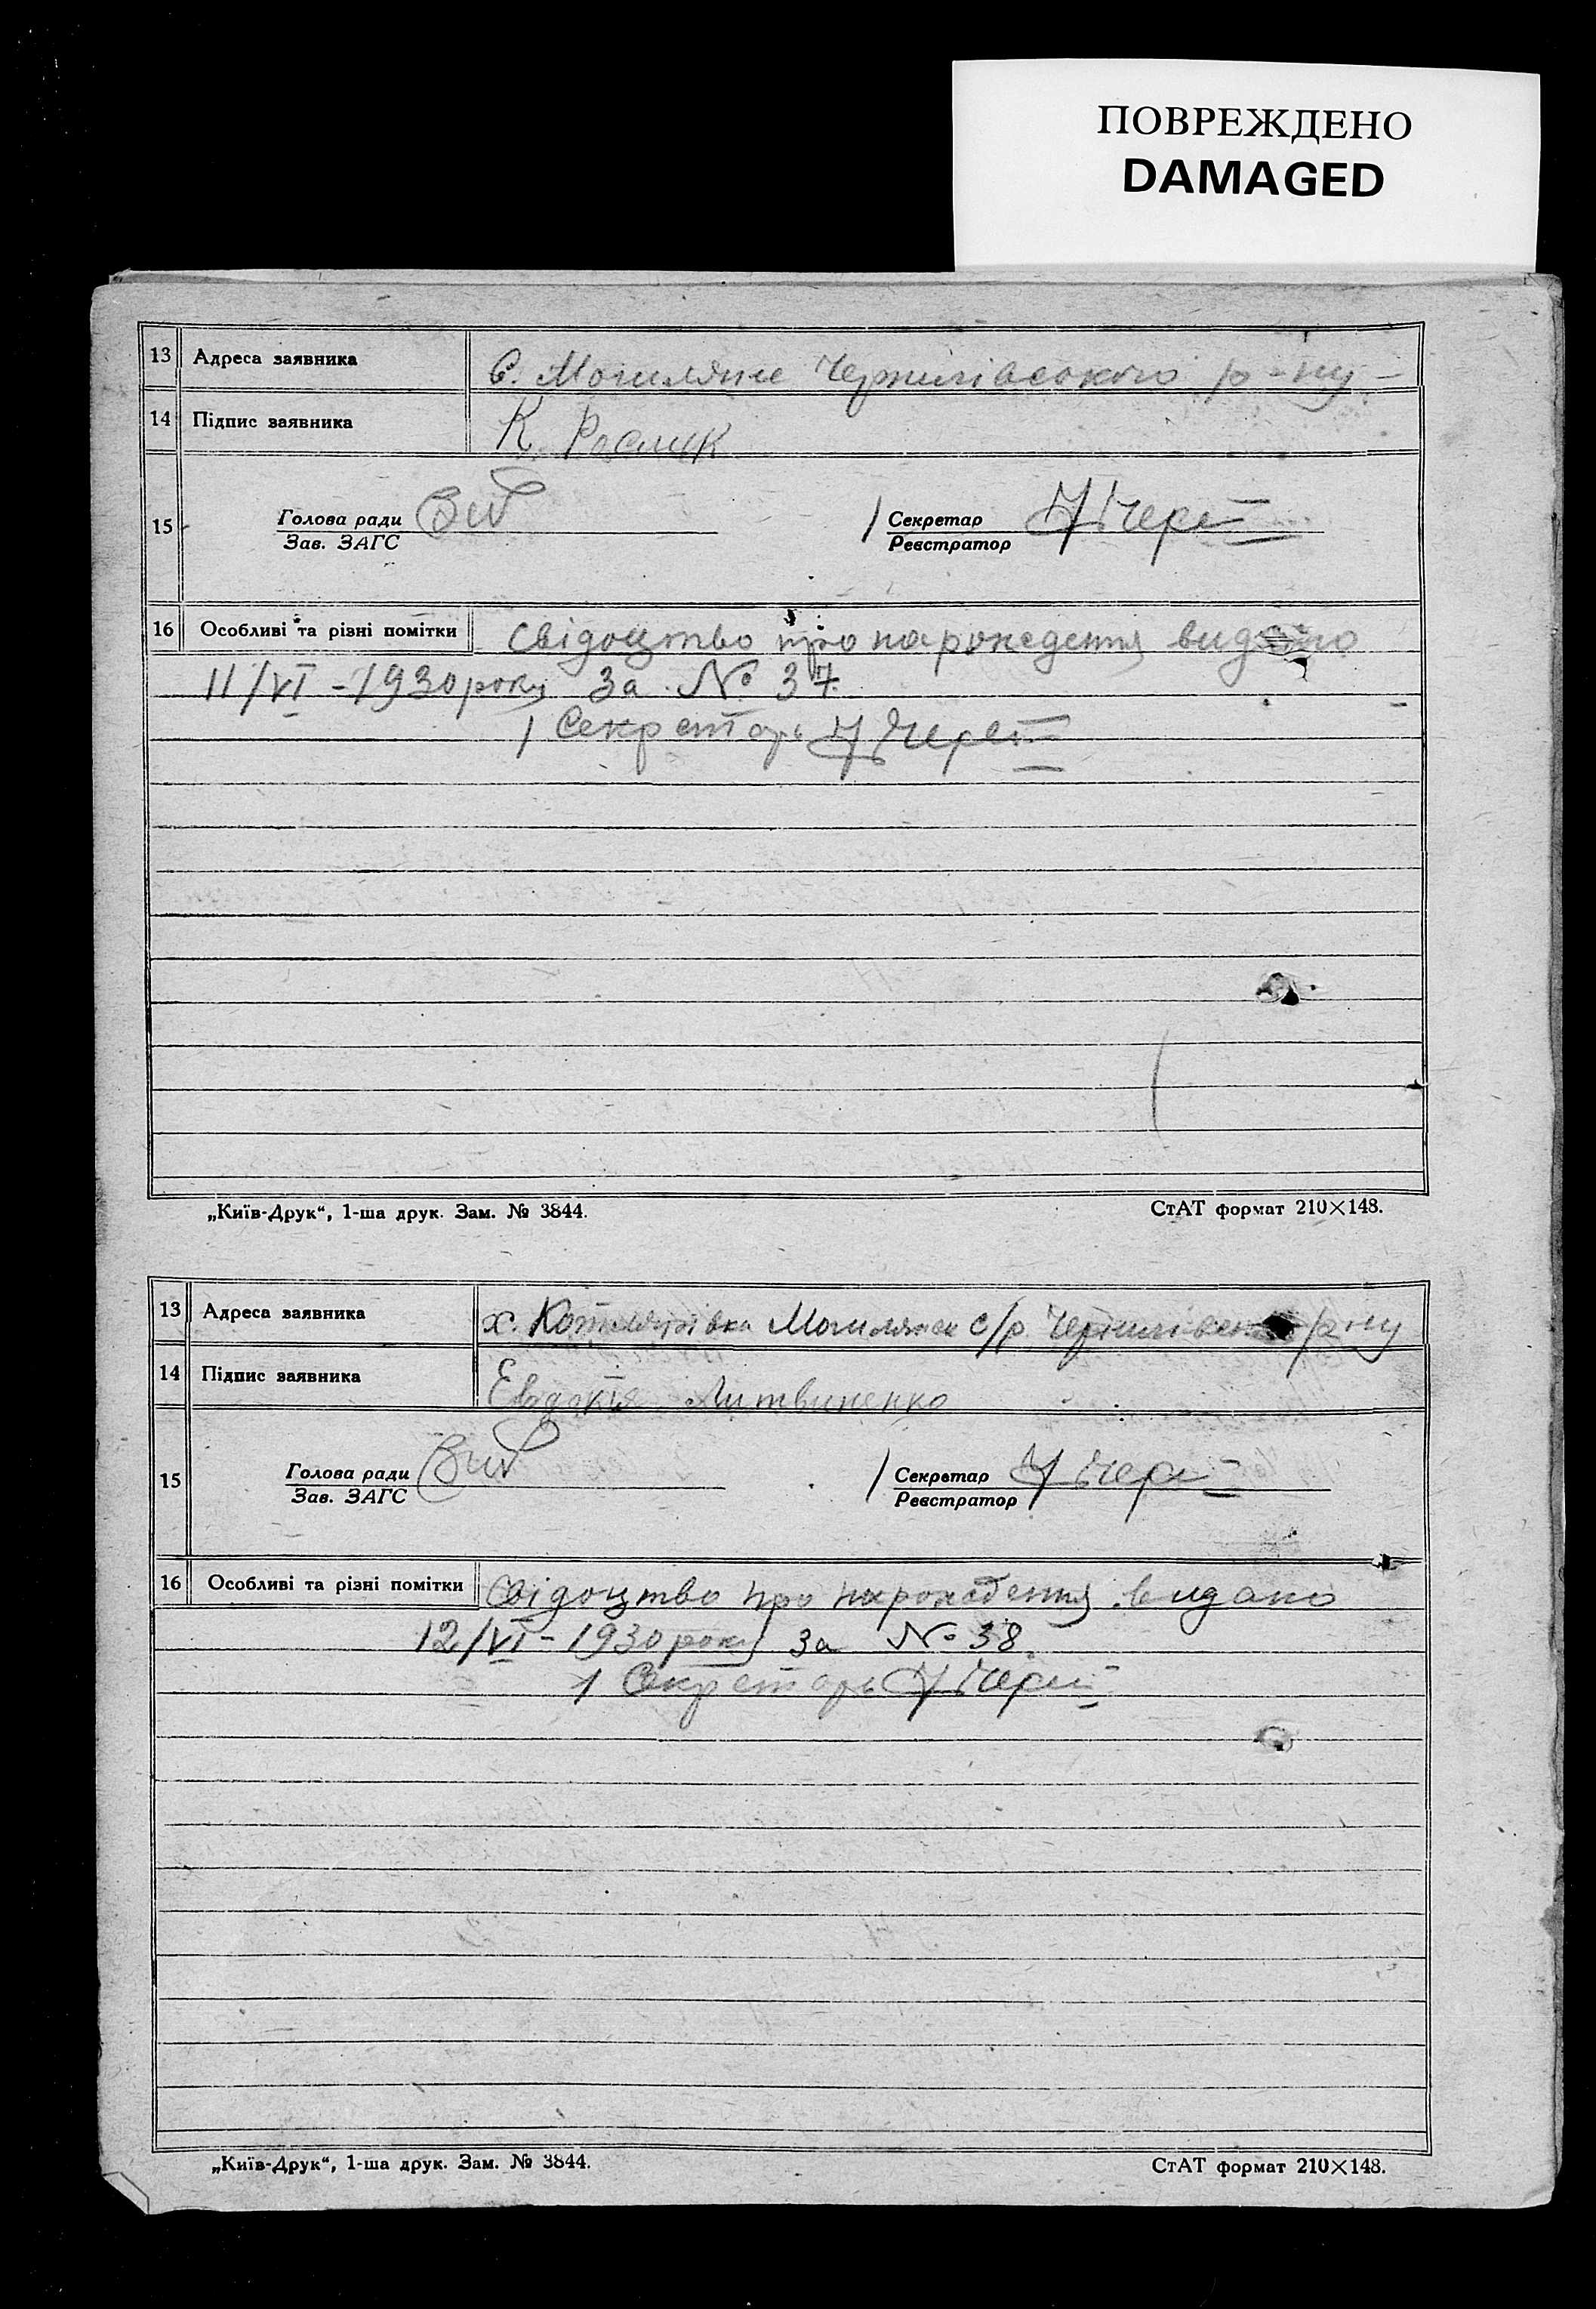 ПОВРЕЖДЕНО
DAMAGED
13 Адреса заявника С. Могиляне Чернигівського р-ну
14 Підпис заявника К.
15 Голова ради Секретар
Зав. ЗАГС Реєстратор
16 Особливі та різні помітки Свідоцтво про народження видано
11/VI - 1930 року за № 37
Секретарь
„Київ-Друк“, 1-ша друк. Зам. № 3844. СтАТ формат 210×148.
13 Адреса заявника х. Котлярівка с/р р-ну
14 Підпис заявника Евдокія Литвиненко
15 Голова ради Секретар
Зав. ЗАГС Реєстратор
16 Особливі та різні помітки Свідоцтво про народження видано
12/VI - 1930 року за № 38
Секретарь
„Київ-Друк“, 1-ша друк. Зам. № 3844. СтАТ формат 210×148.